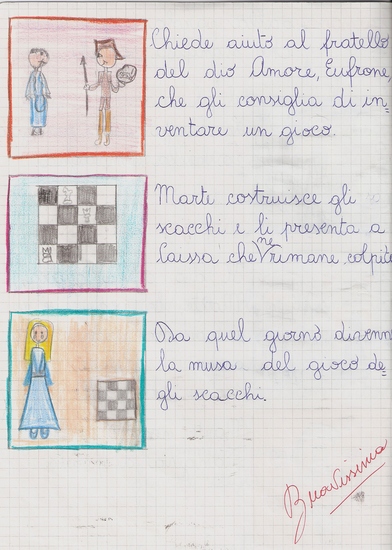 Chiede aiuto al fratello
del dio Amore, Eufrone,
che gli consiglia di in=
ventare un gioco.
Marte costruisce gli
scacchi e li presenta a
Caissa che ne rimane colpita
Da quel giorno divenne
la musa del gioco de=
gli scacchi.
Bravissima